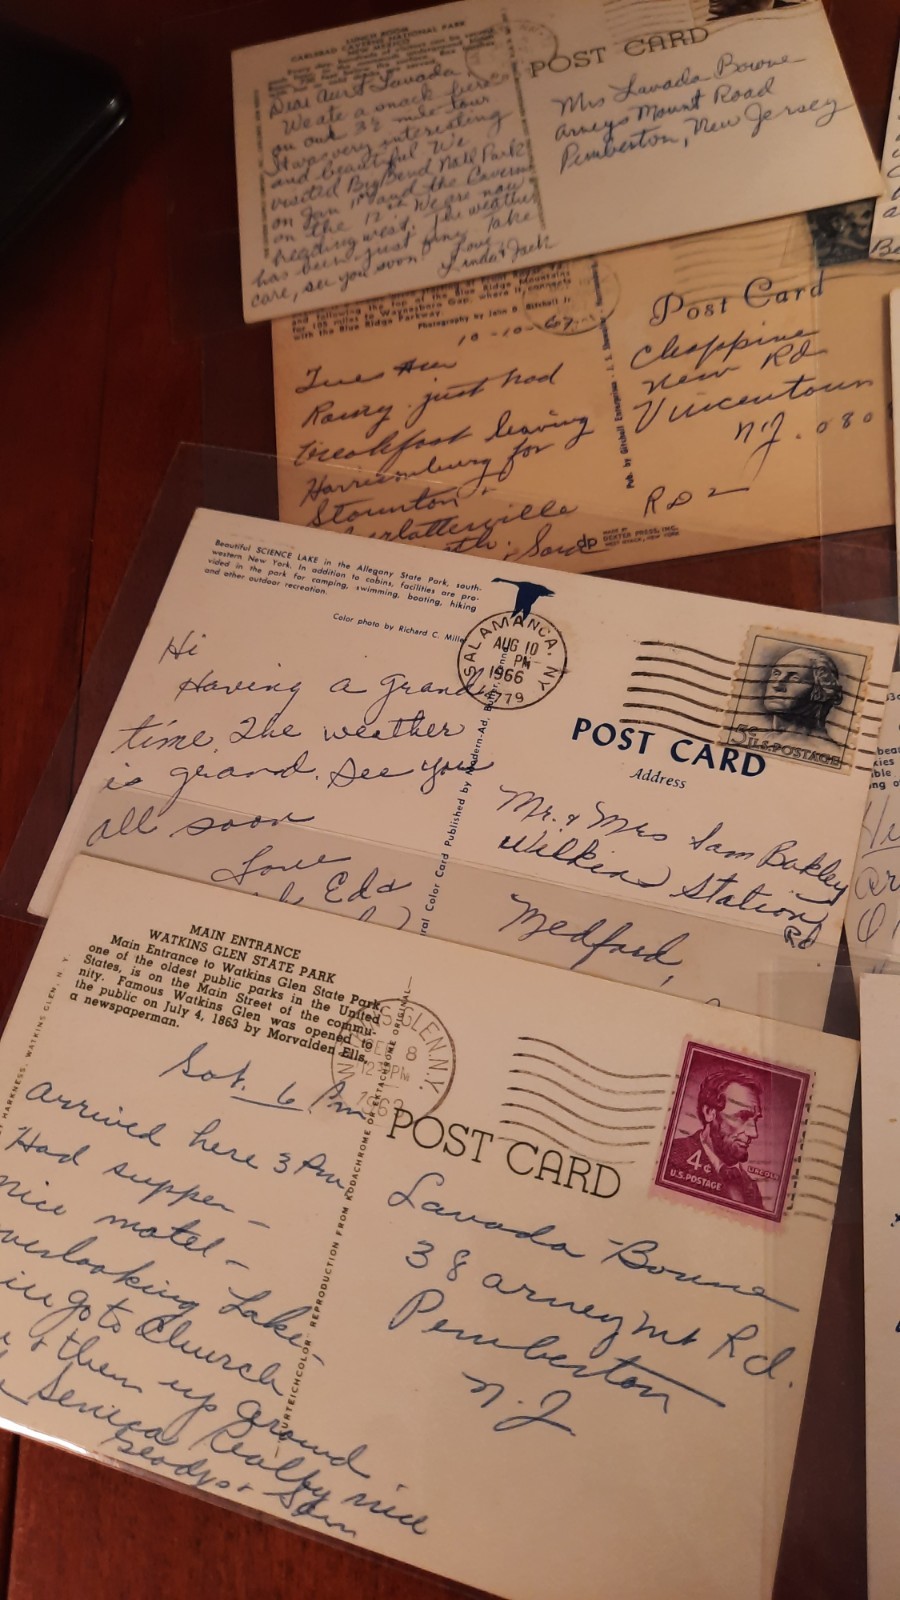 LUNCH ROOM
CARLSBAD CAVERNS NATIONAL PARK
NEW MEXICO
Dear Aunt Lavada,
We ate a snack here
on our 3½ mile tour
It was very interesting
and beautiful. We
visited Big Bend Natl Park
on Jan 11th and the Cavern
on the 12th We are now
heading west. The weather
has been just fine. Take
care, see you soon. Love
Linda & Jack
POST CARD
Mrs Lavada Bowne
Arneys Mount Road
Pemberton, New Jersey
and following the top of the Blue Ridge Mountains
for 105 miles to Waynesboro Gap, where it connects
with the Blue Ridge Parkway.
Photography by John B.
10-10-67
Tues
just had
breakfast leaving
Harrisonburg for
Staunton &
Charlottesville
Post Card
New Rd
Vincentown
N.J. 080
RD 2
MADE BY
dp DEXTER PRESS, INC.
WEST NYACK, NEW YORK
Beautiful SCIENCE LAKE in the Allegany State Park, south-
western New York. In addition to cabins, facilities are pro-
vided in the park for camping, swimming, boating, hiking
and other outdoor recreation.
Color photo by Richard C. Miller
Hi
Having a grand
time. The weather
is grand. See you
all soon
Love
Ed &
SALAMANCA, N.Y.
AUG 10
PM
1966
14779
5c U.S. POSTAGE
POST CARD
Address
Mr. & Mrs Sam Bakley
Wilkins Station
Rd
Medford,
ral Color Card Published by Modern-Ad, Butler, Penn
MAIN ENTRANCE
WATKINS GLEN STATE PARK
Main Entrance to Watkins Glen State Park,
one of the oldest public parks in the United
States, is on the Main Street of the commu-
nity. Famous Watkins Glen was opened to
the public on July 4, 1863 by Morvalden Ells,
a newspaperman.
HARKNESS, WATKINS GLEN, N. Y.
Sat. 6 Pm
Arrived here 3 Pm
Had supper -
nice motel -
overlooking Lake -
go to Church
& then up around
Seneca Really nice
Gladys & Sam
GLEN, N.Y.
8
12 PM
CURTEICHCOLOR® REPRODUCTION FROM KODACHROME OR EKTACHROME ORIGINAL
POST CARD
4¢
U.S. POSTAGE
LINCOLN
Lavada Bowne
38 Arney Mt Rd.
Pemberton
N.J.